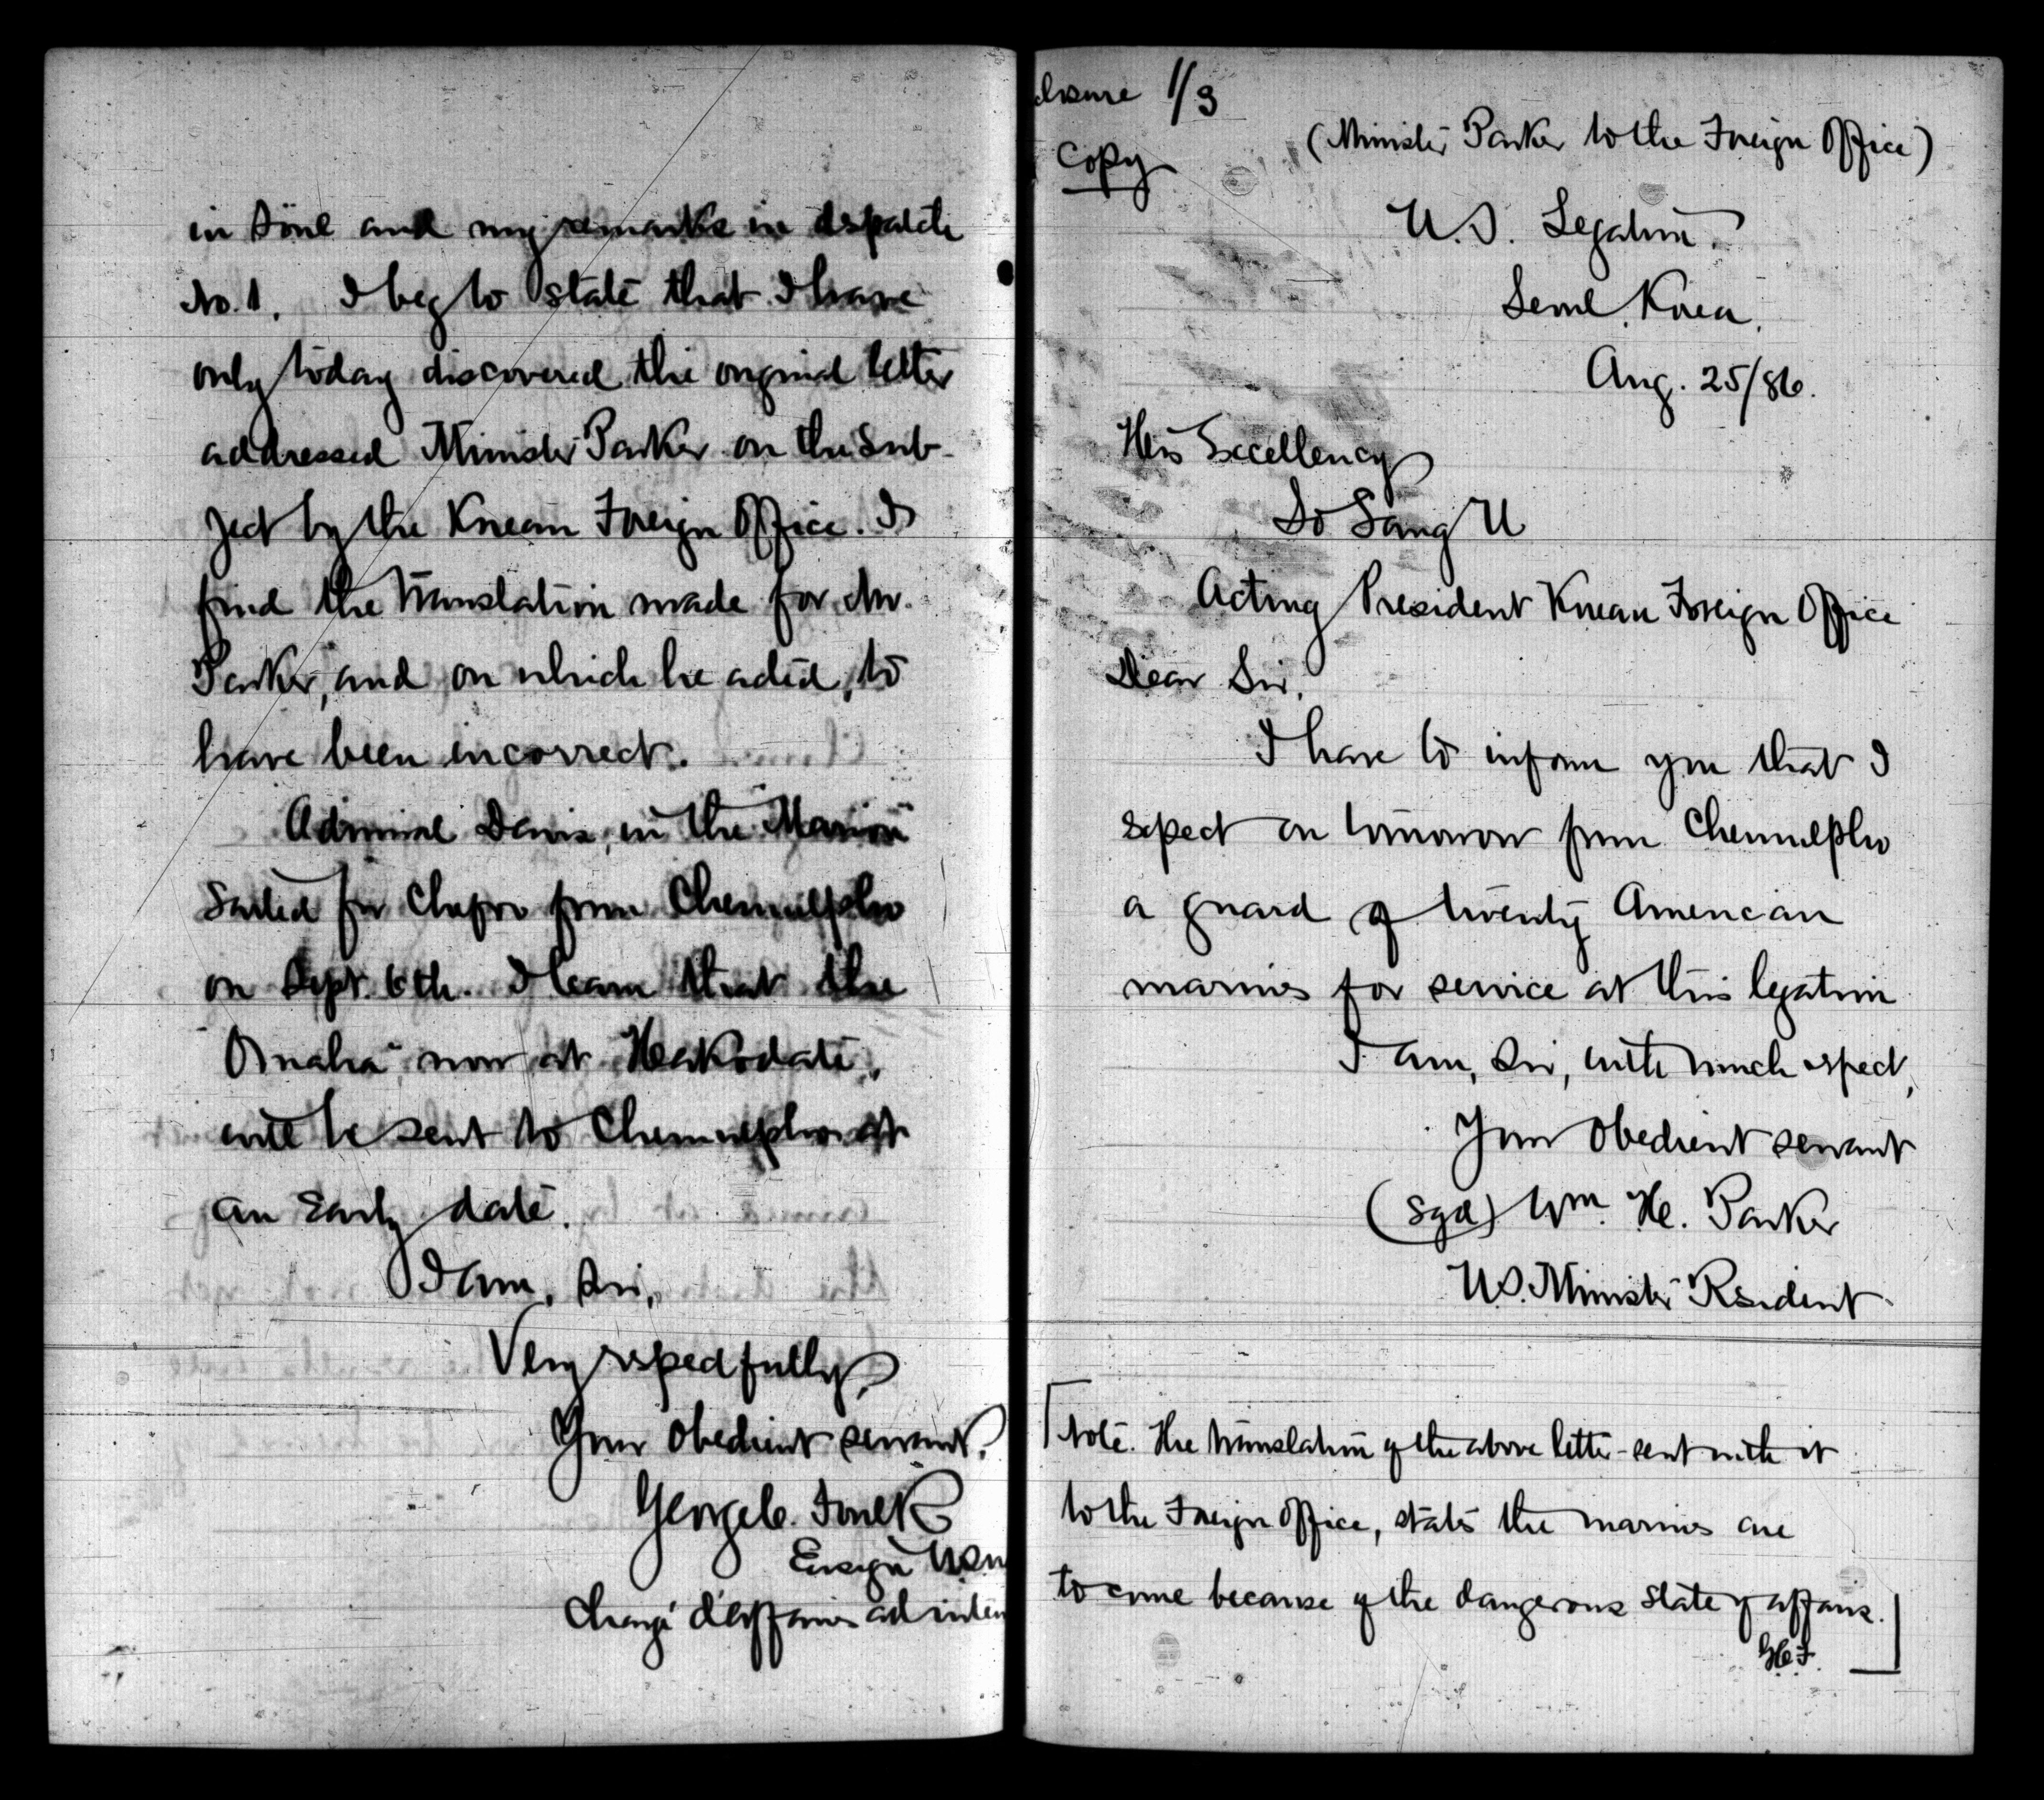 in Söul and my remarks in dispatch
No. 1, I beg to state that I have
only today discovered the original letter
addressed Minister Parker on the sub-
ject by the Korean Foreign Office. I
find the translation made for Mr.
Parker, and on which he acted, to
have been incorrect.
Admiral Davis, in the "Marion"
sailed for Chefoo from Chemulpho
on Sept. 6th. I learn that the
"Omaha" now at Hakodate,
will be sent to Chemulpho at
an early date.
I am, Sir,
Very respectfully,
Your obedient servant,
George C. Foulk
Ensign U.S.N
Chargé d'affaires ad inter
closure 1/3
Copy
(Minister Parker to the Foreign Office)
U.S. Legation.
Seoul, Korea.
Aug. 25/86.
His Excellency
So Sang U
Acting President Korean Foreign Office
Dear Sir,
I have to inform you that I
expect on tomorrow from Chemulpho
a guard of twenty American
marines for service at this legation
I am, Sir, with much respect,
Your obedient servant
(sgd) Wm. H. Parker
U.S. Minister Resident
[Note. The translation of the above letter - sent with it
to the Foreign Office, states the marines are
to come because of the dangerous state of affairs.
G.C.F.]